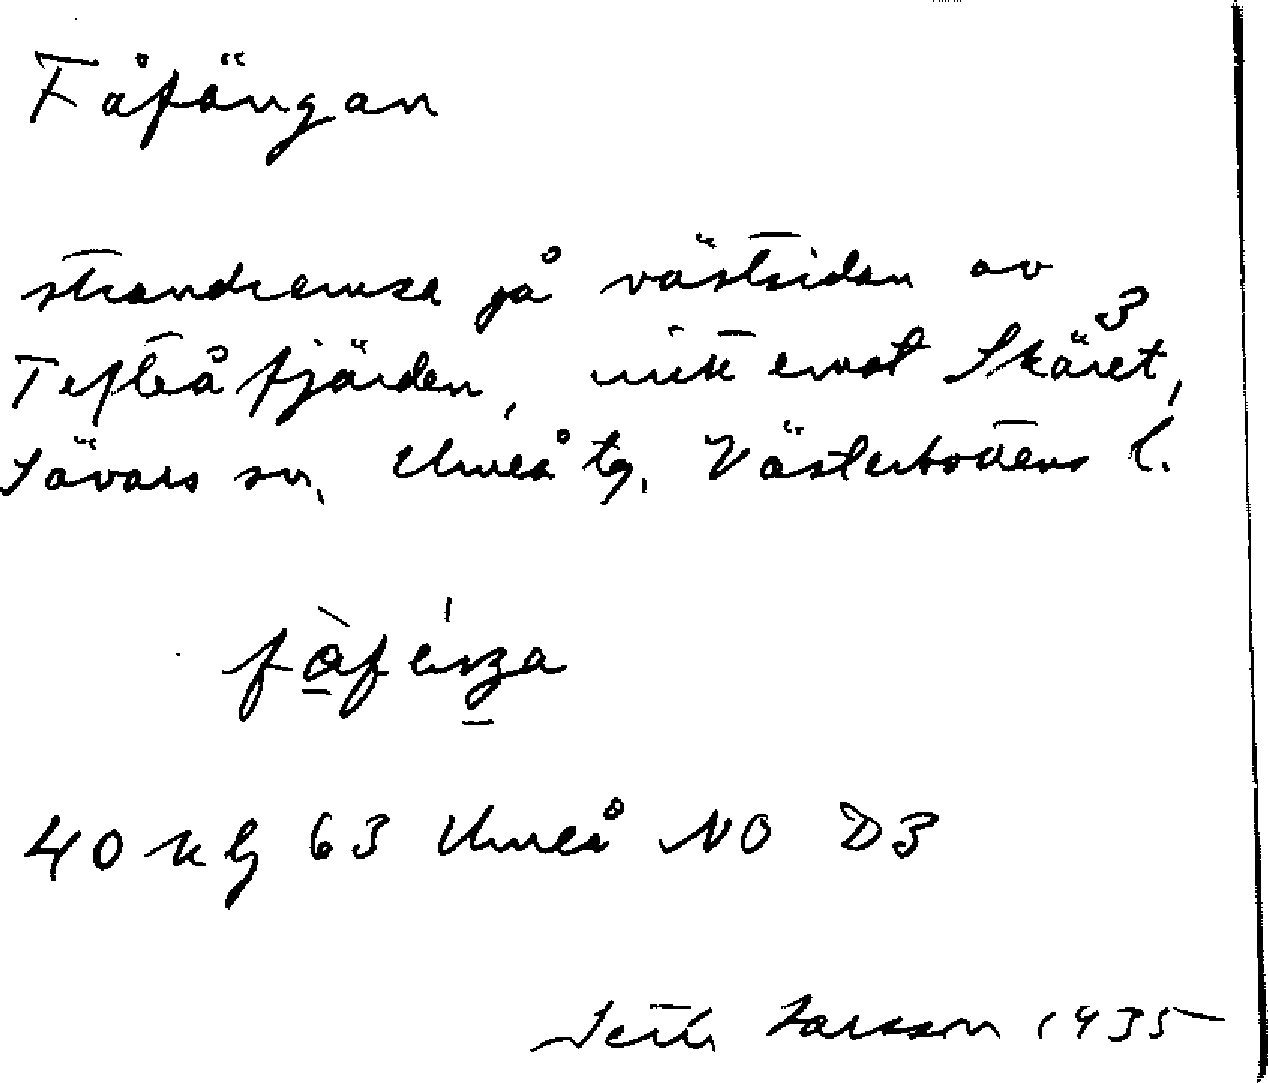 Fåfängan
strandremsa på västsidan av
Tefteåfjärden, mitt emot Skäret, 3
Sävars sn, Umeå tg, Västerbottens l.
40 kbl 63 Umeå NO D3
Seth Larsson 1935